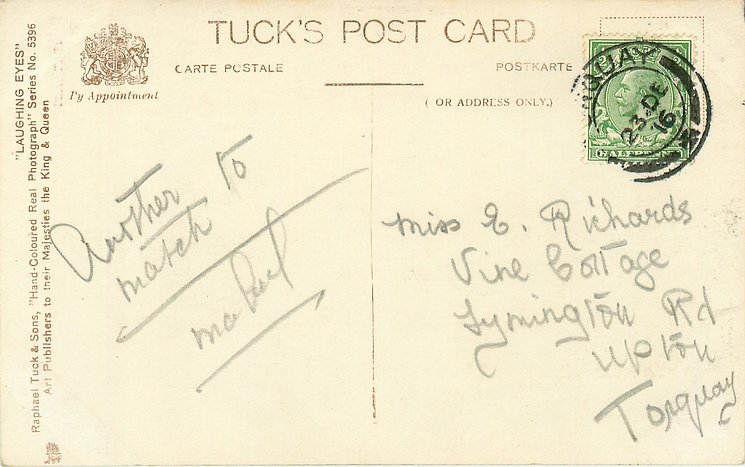 TUCK'S POST CARD
CARTE POSTALE
POSTKARTE
By Appointment
( OR ADDRESS ONLY.)
"LAUGHING EYES"
Raphael Tuck & Sons, "Hand-Coloured Real Photograph" Series No. 5396
Art Publishers to their Majesties the King & Queen
Another
match to
mabel
Miss E. Richards
Vine Cottage
Lymington Rd
Upton
Torquay
QUAY
23 DE
16
HALFPENNY